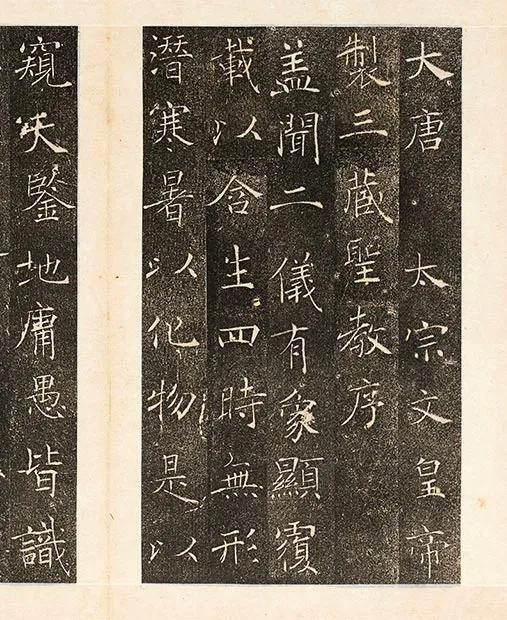 大唐 太宗文皇帝
製三藏聖教序
盖聞二儀有象顯覆
載以含生四時無形
潛寒暑以化物是以
窺天鑒地庸愚皆識